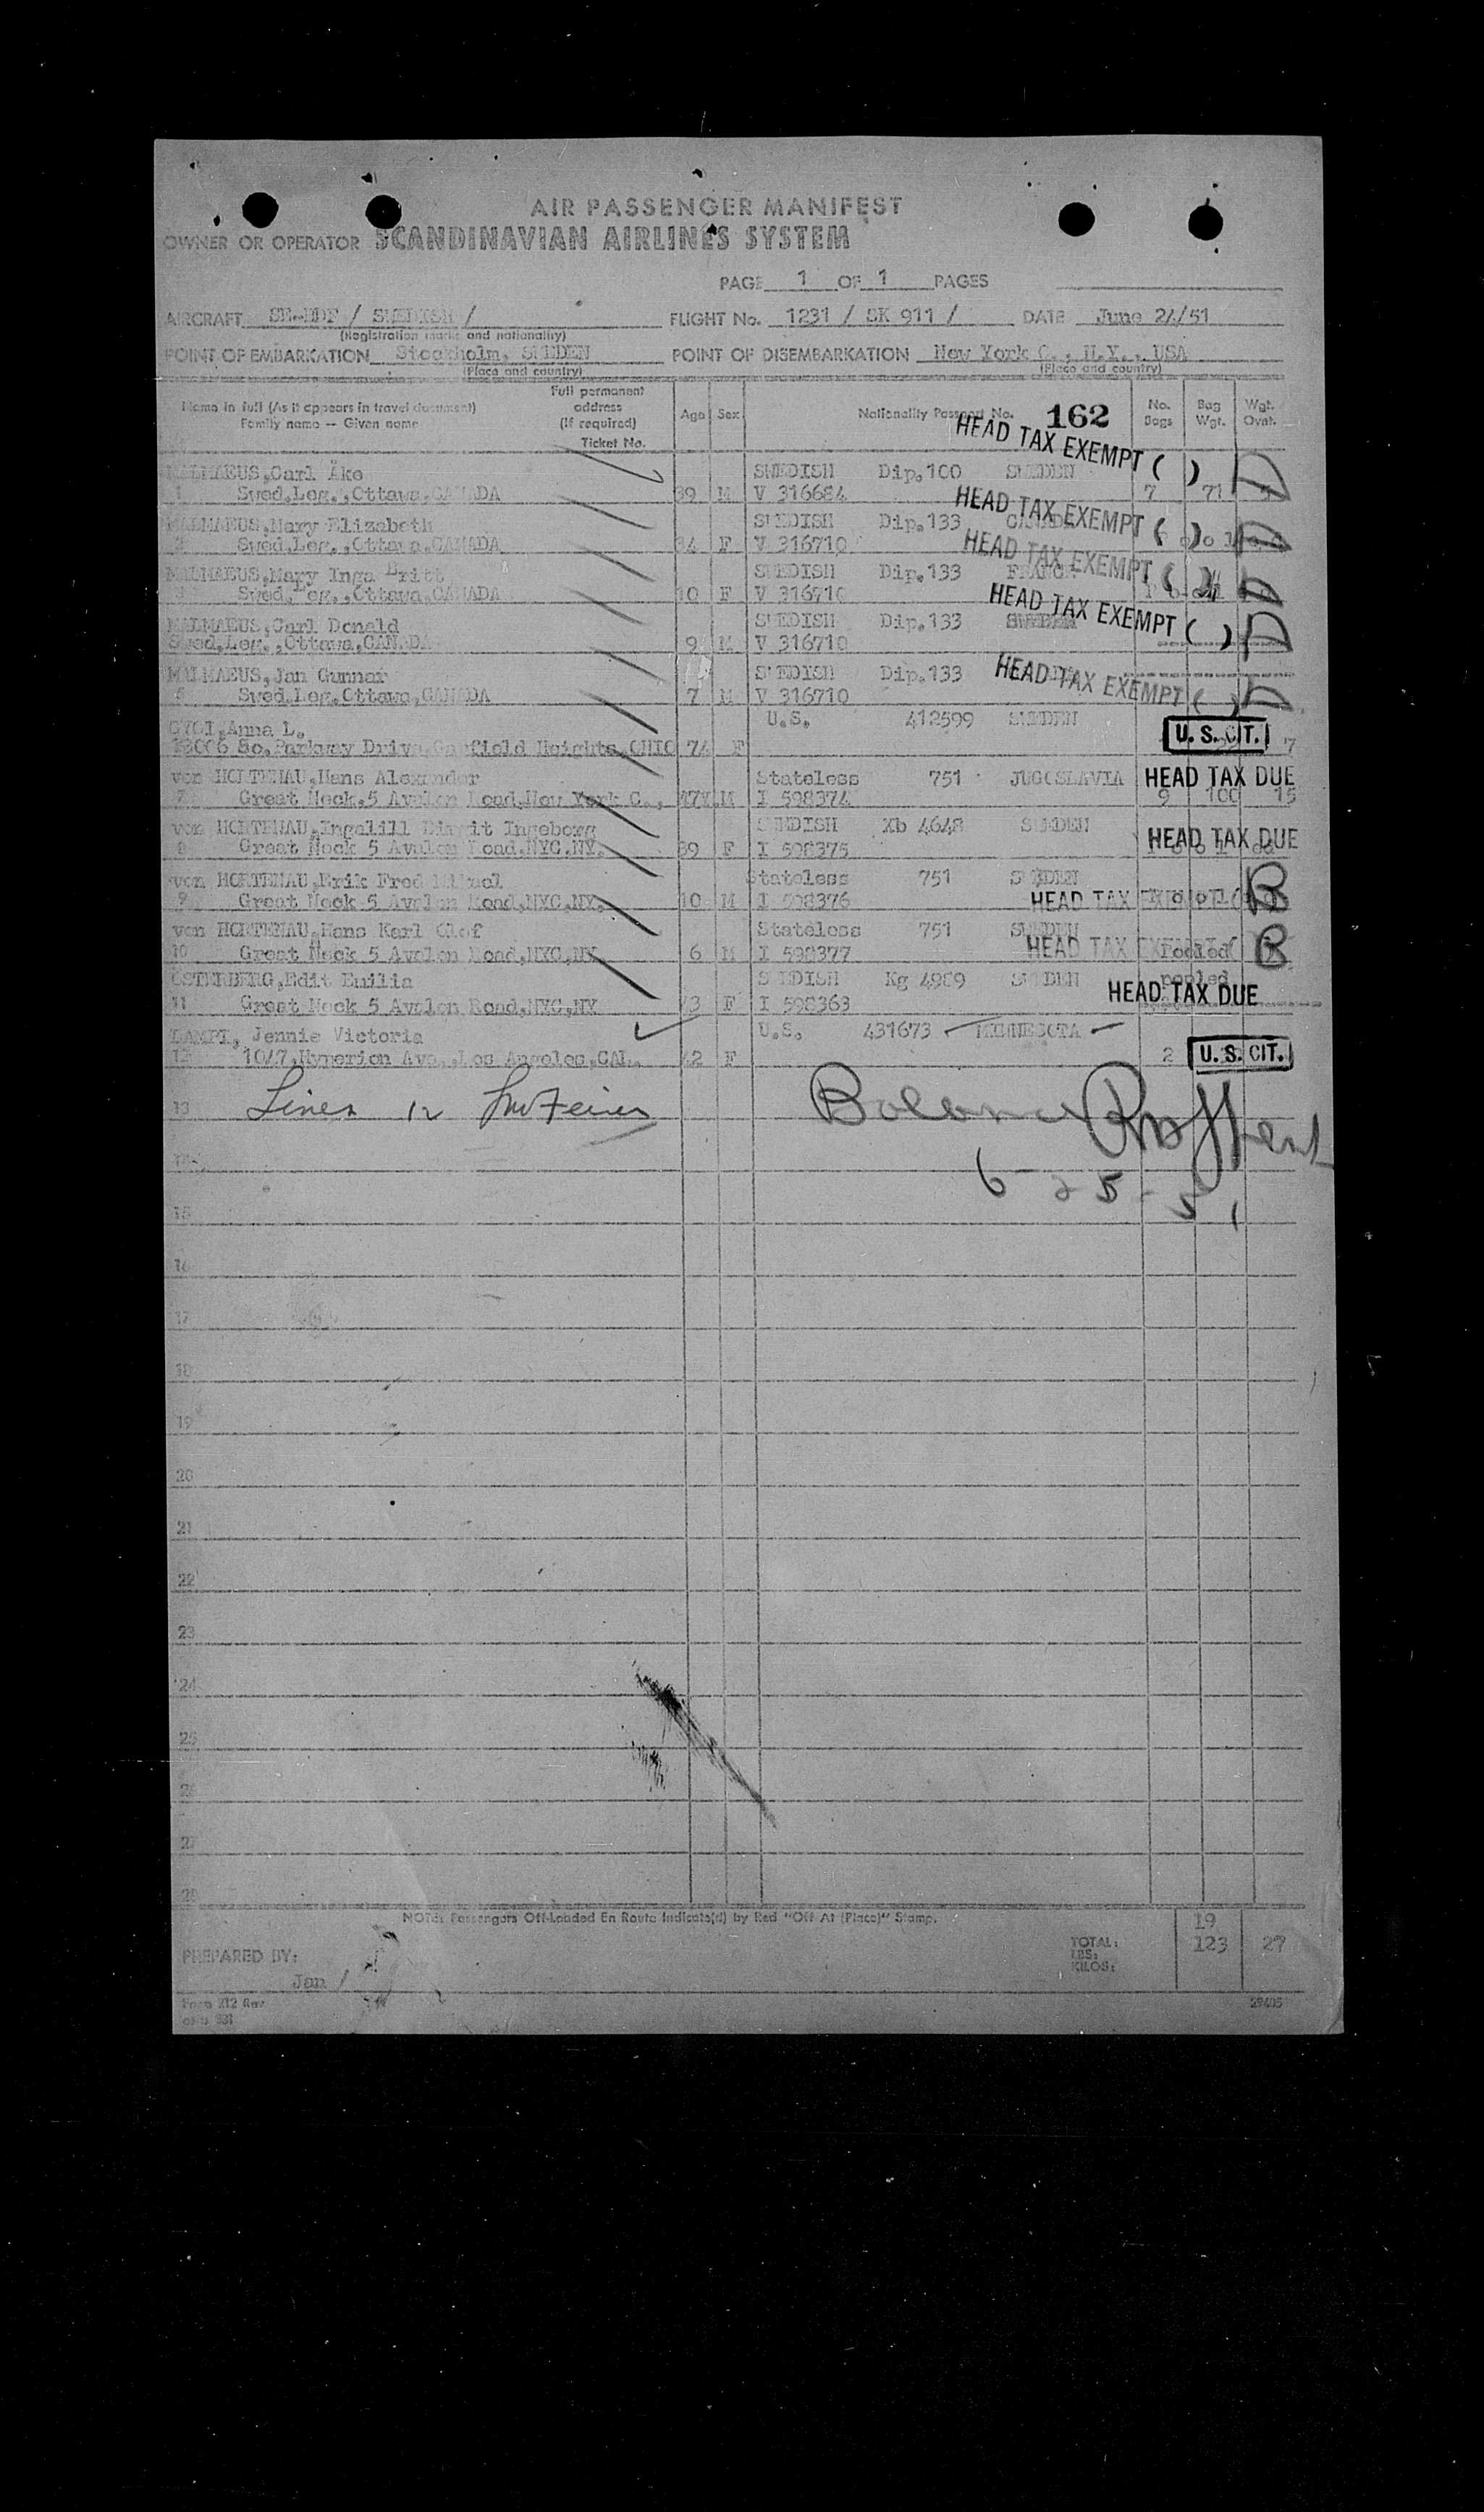 AIR PASSENGER MANIFEST
OWNER OR OPERATOR SCANDINAVIAN AIRLINES SYSTEM
PAGE 1 OF 1 PAGES
AIRCRAFT SE-BDF / SWEDISH / FLIGHT No. 1231 / SK 911 / DATE June 24/51
(Registration marks and nationality)
POINT OF EMBARKATION Stockholm, SWEDEN POINT OF DISEMBARKATION New York C., N.Y., USA
(Place and country) (Place and country)
Name in full (As it appears in travel document)
Family name -- Given name
Full permanent
address
(if required)
Ticket No.
Age Sex Nationality Passport No. 162 No. Bags Bag Wgt. Wgt. Ovnt.
MALMAEUS, Carl Åke SWEDISH Dip.100 SWEDEN HEAD TAX EXEMPT ( ) D
1 Swed.Leg.,Ottawa,CANADA 39 M V 316684 7 71
MALMAEUS, Mary Elizabeth SWEDISH Dip.133 CANADA HEAD TAX EXEMPT ( ) D
2 Swed.Leg.,Ottawa,CANADA 34 F V 316710
MALMAEUS, Mary Inga Britt SWEDISH Dip.133 FRANCE HEAD TAX EXEMPT ( ) D
3 Swed.Leg.,Ottawa,CANADA 10 F V 316710
MALMAEUS, Carl Donald SWEDISH Dip.133 SWEDEN HEAD TAX EXEMPT ( ) D
Swed.Leg.,Ottawa,CANADA 9 M V 316710
MALMAEUS, Jan Gunnar SWEDISH Dip.133 HEAD TAX EXEMPT ( ) D
5 Swed.Leg.Ottawa,CANADA 7 M V 316710
Anna L. U.S. 412599 SWEDEN U. S. CIT.
So.Parkway Drive Garfield Heights, OHIO 74 F 7
von HORTENAU, Hans Alexander Stateless 751 JUGOSLAVIA HEAD TAX DUE
7 Great Neck,5 Avalon Road,New York C., 47 M I 598374 9 100 15
von HORTENAU, Ingalill Birgit Ingeborg SWEDISH Xb 4648 SWEDEN HEAD TAX DUE
8 Great Neck 5 Avalon Road,NYC,NY. 39 F I 598375
von HORTENAU, Erik Fred Stateless 751 SWEDEN
9 Great Neck 5 Avalon Road,NYC,NY. 10 M I 598376 HEAD TAX B
von HORTENAU, Hans Karl Olof Stateless 751 SWEDEN
10 Great Neck 5 Avalon Road,NYC,NY 6 M I 598377 HEAD TAX EXEMPT Pooled B
OSTERBERG, Edit Emilia SWEDISH Kg 4989 SWEDEN pooled
11 Great Neck 5 Avalon Road,NYC,NY 73 F I 598363 HEAD TAX DUE
LAMPI, Jennie Victoria U.S. 431673 MINNESOTA
12 1047,Hyperion Ave.,Los Angeles,CAL. 42 F 2 U. S. CIT.
13 Lines 12
14
6-25-51
15
16
17
18
19
20
21
22
23
24
25
26
27
28
NOTE: Passengers Off-Loaded En Route Indicate(d) by Red "Off At (Place)" Stamp.
19
TOTAL: 123 27
LBS:
KILOS:
PREPARED BY:
Jan /
Form 212 Rev
29405